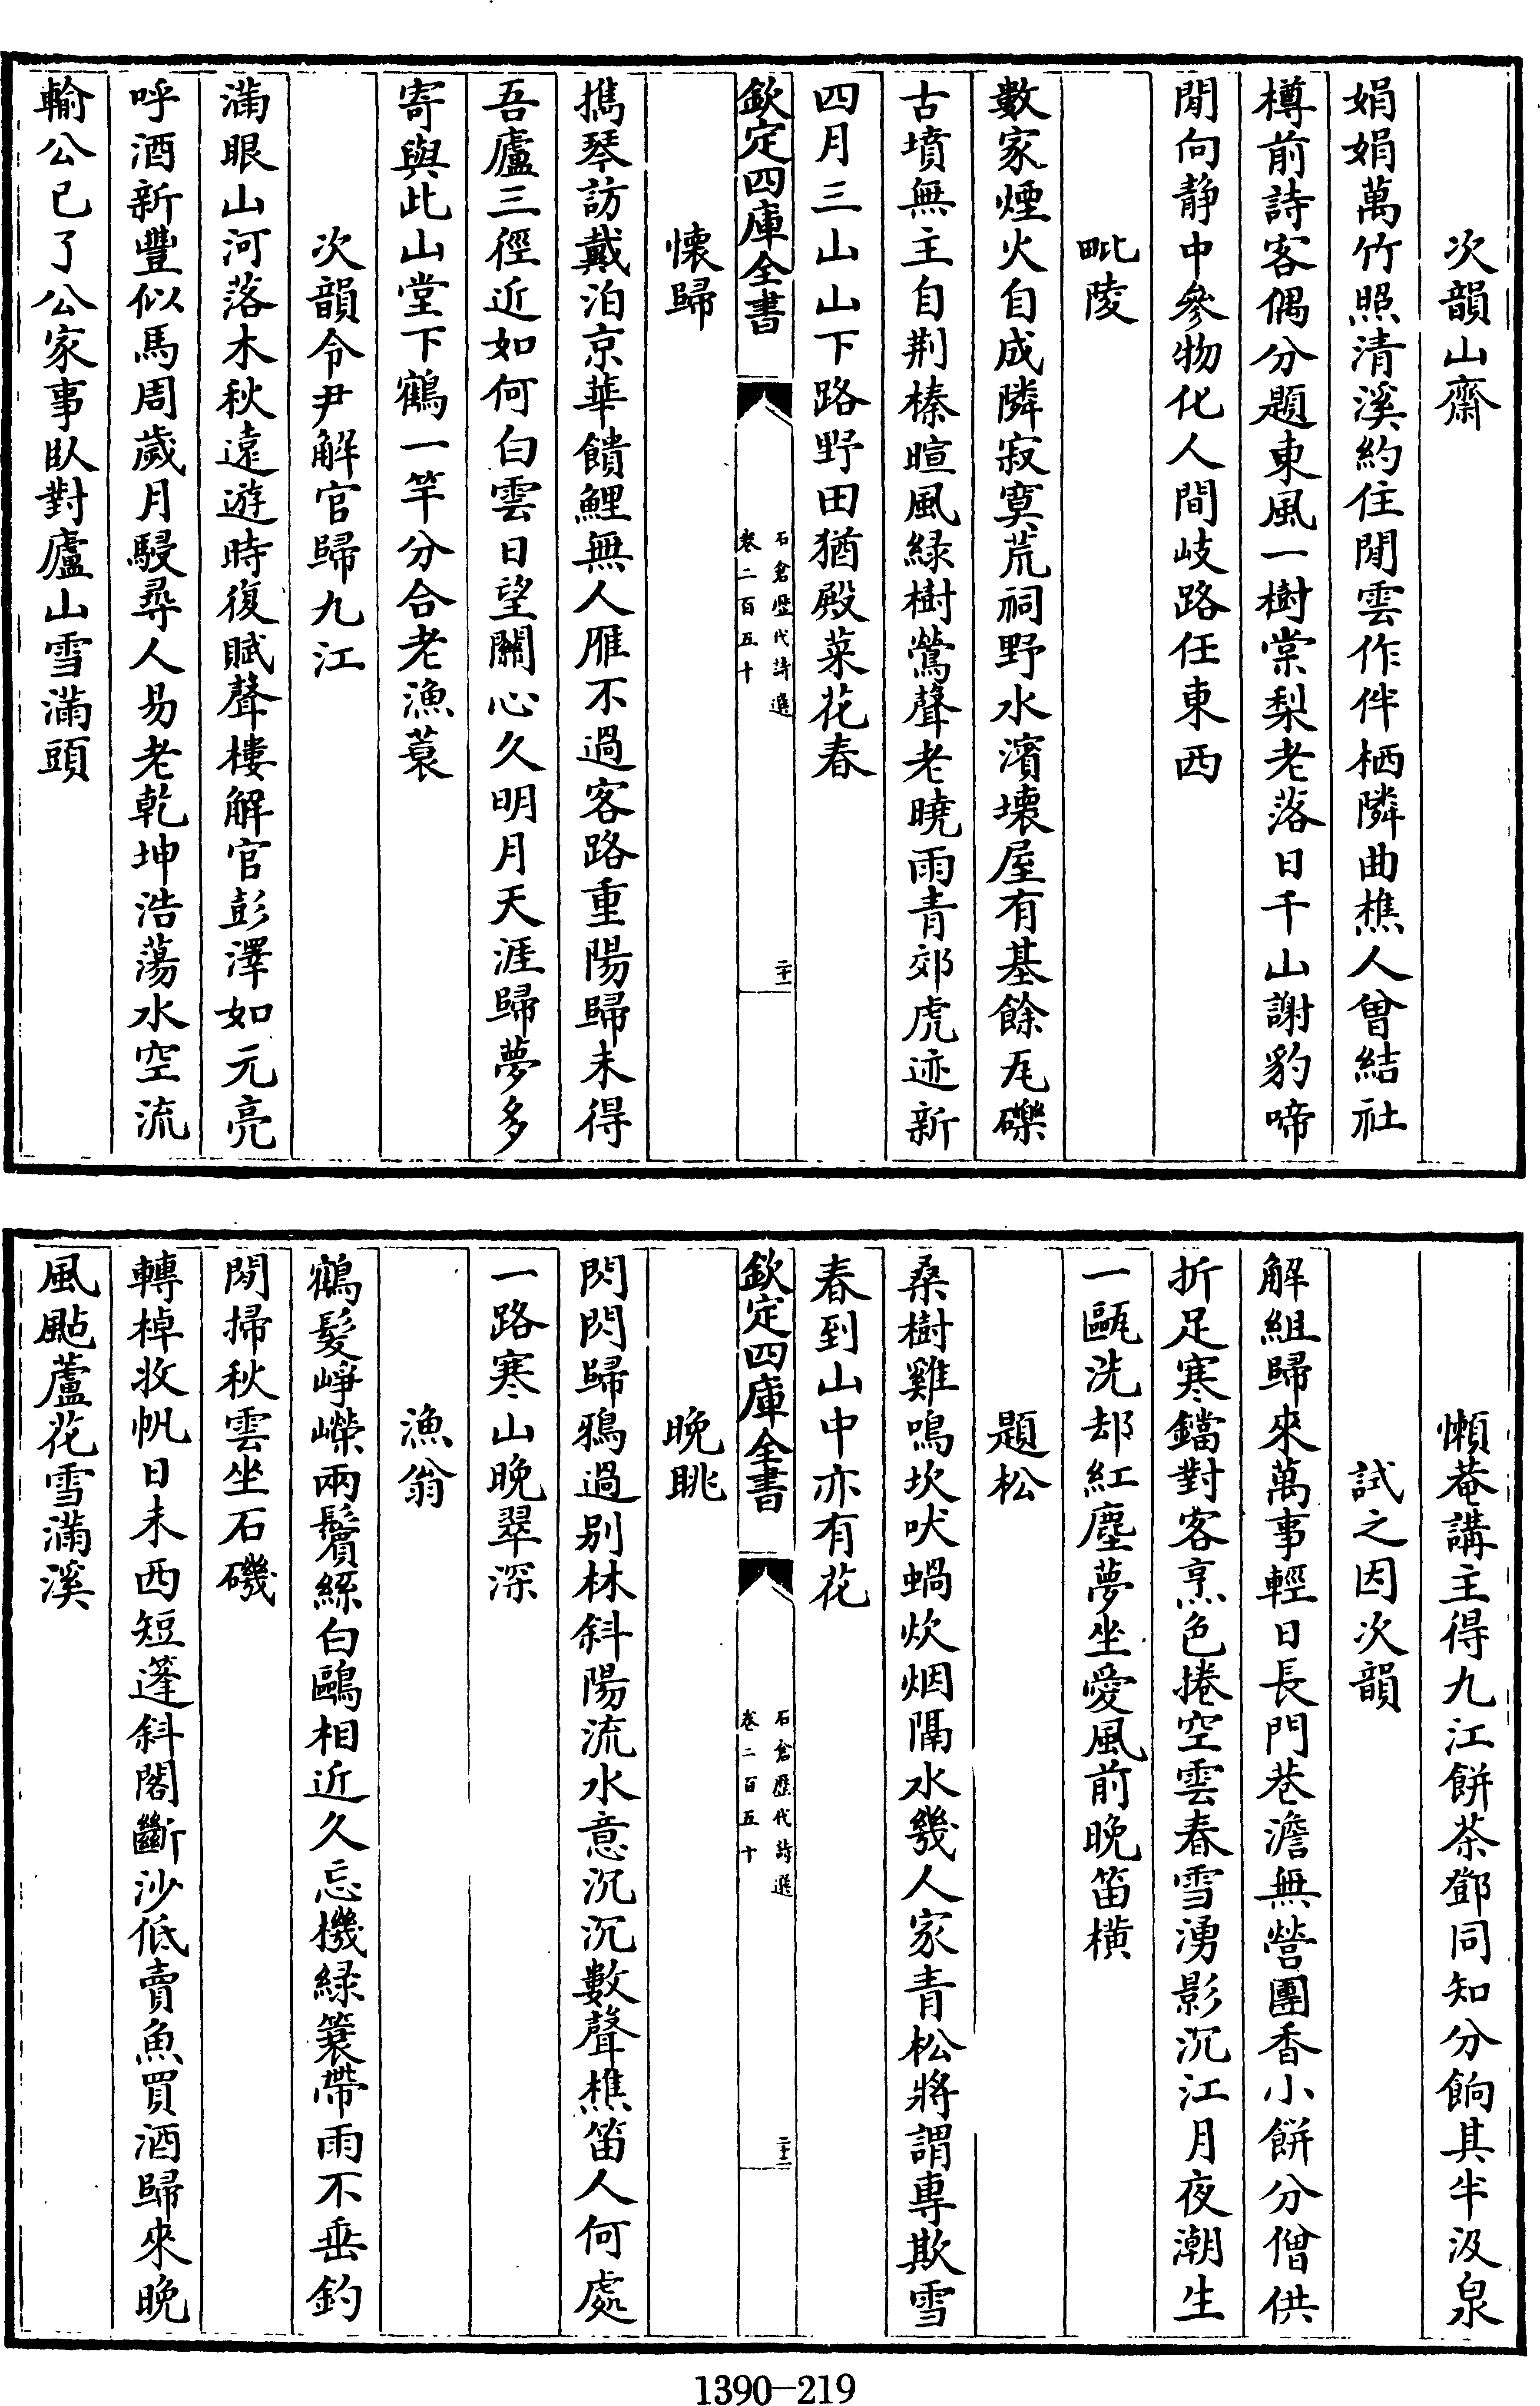 次韻山齋
娟娟萬竹照清溪約住閒雲作伴栖隣曲樵人曾結社
樽前詩客偶分題東風一樹棠梨老落日千山謝豹啼
閒向静中參物化人間岐路任東西
毗陵
數家煙火自成隣寂寞荒祠野水濱壊屋有基餘瓦礫
古墳無主自荆榛暄風緑樹鶯聲老曉雨青郊虎迹新
四月三山山下路野田猶殿菜花春
欽定四庫全書
石倉歴代詩選
卷二百五十
二十一
懐歸
攜琴訪戴泊京華饋鯉無人雁不過客路重陽歸未得
吾廬三徑近如何白雲日望關心久明月天涯歸夢多
寄與此山堂下鶴一竿分合老漁蓑
次韻令尹解官歸九江
滿眼山河落木秋遠遊時復賦聲樓解官彭澤如元亮
呼酒新豐似馬周歲月駸尋人易老乾坤浩蕩水空流
輸公已了公家事臥對廬山雪滿頭
懶菴講主得九江餅茶鄧同知分餉其半汲泉
試之因次韻
解組歸來萬事輕日長門巷澹無營團香小餅分僧供
折足寒鐺對客烹色捲空雲春雪湧影沉江月夜潮生
一甌洗却紅塵夢坐愛風前晚笛横
題松
桑樹雞鳴坎吠蝸炊烟隔水幾人家青松將謂專欺雪
春到山中亦有花
欽定四庫全書
石倉歴代詩選
卷二百五十
二十二
晚眺
閃閃歸鴉過别林斜陽流水意沉沉數聲樵笛人何處
一路寒山晚翠深
漁翁
鶴髮崢嶸兩鬢絲白鷗相近久忘機緑蓑帶雨不垂釣
閒掃秋雲坐石磯
轉棹收帆日未西短篷斜閣斷沙低賣魚買酒歸來晚
風颭蘆花雪滿溪
1390—219